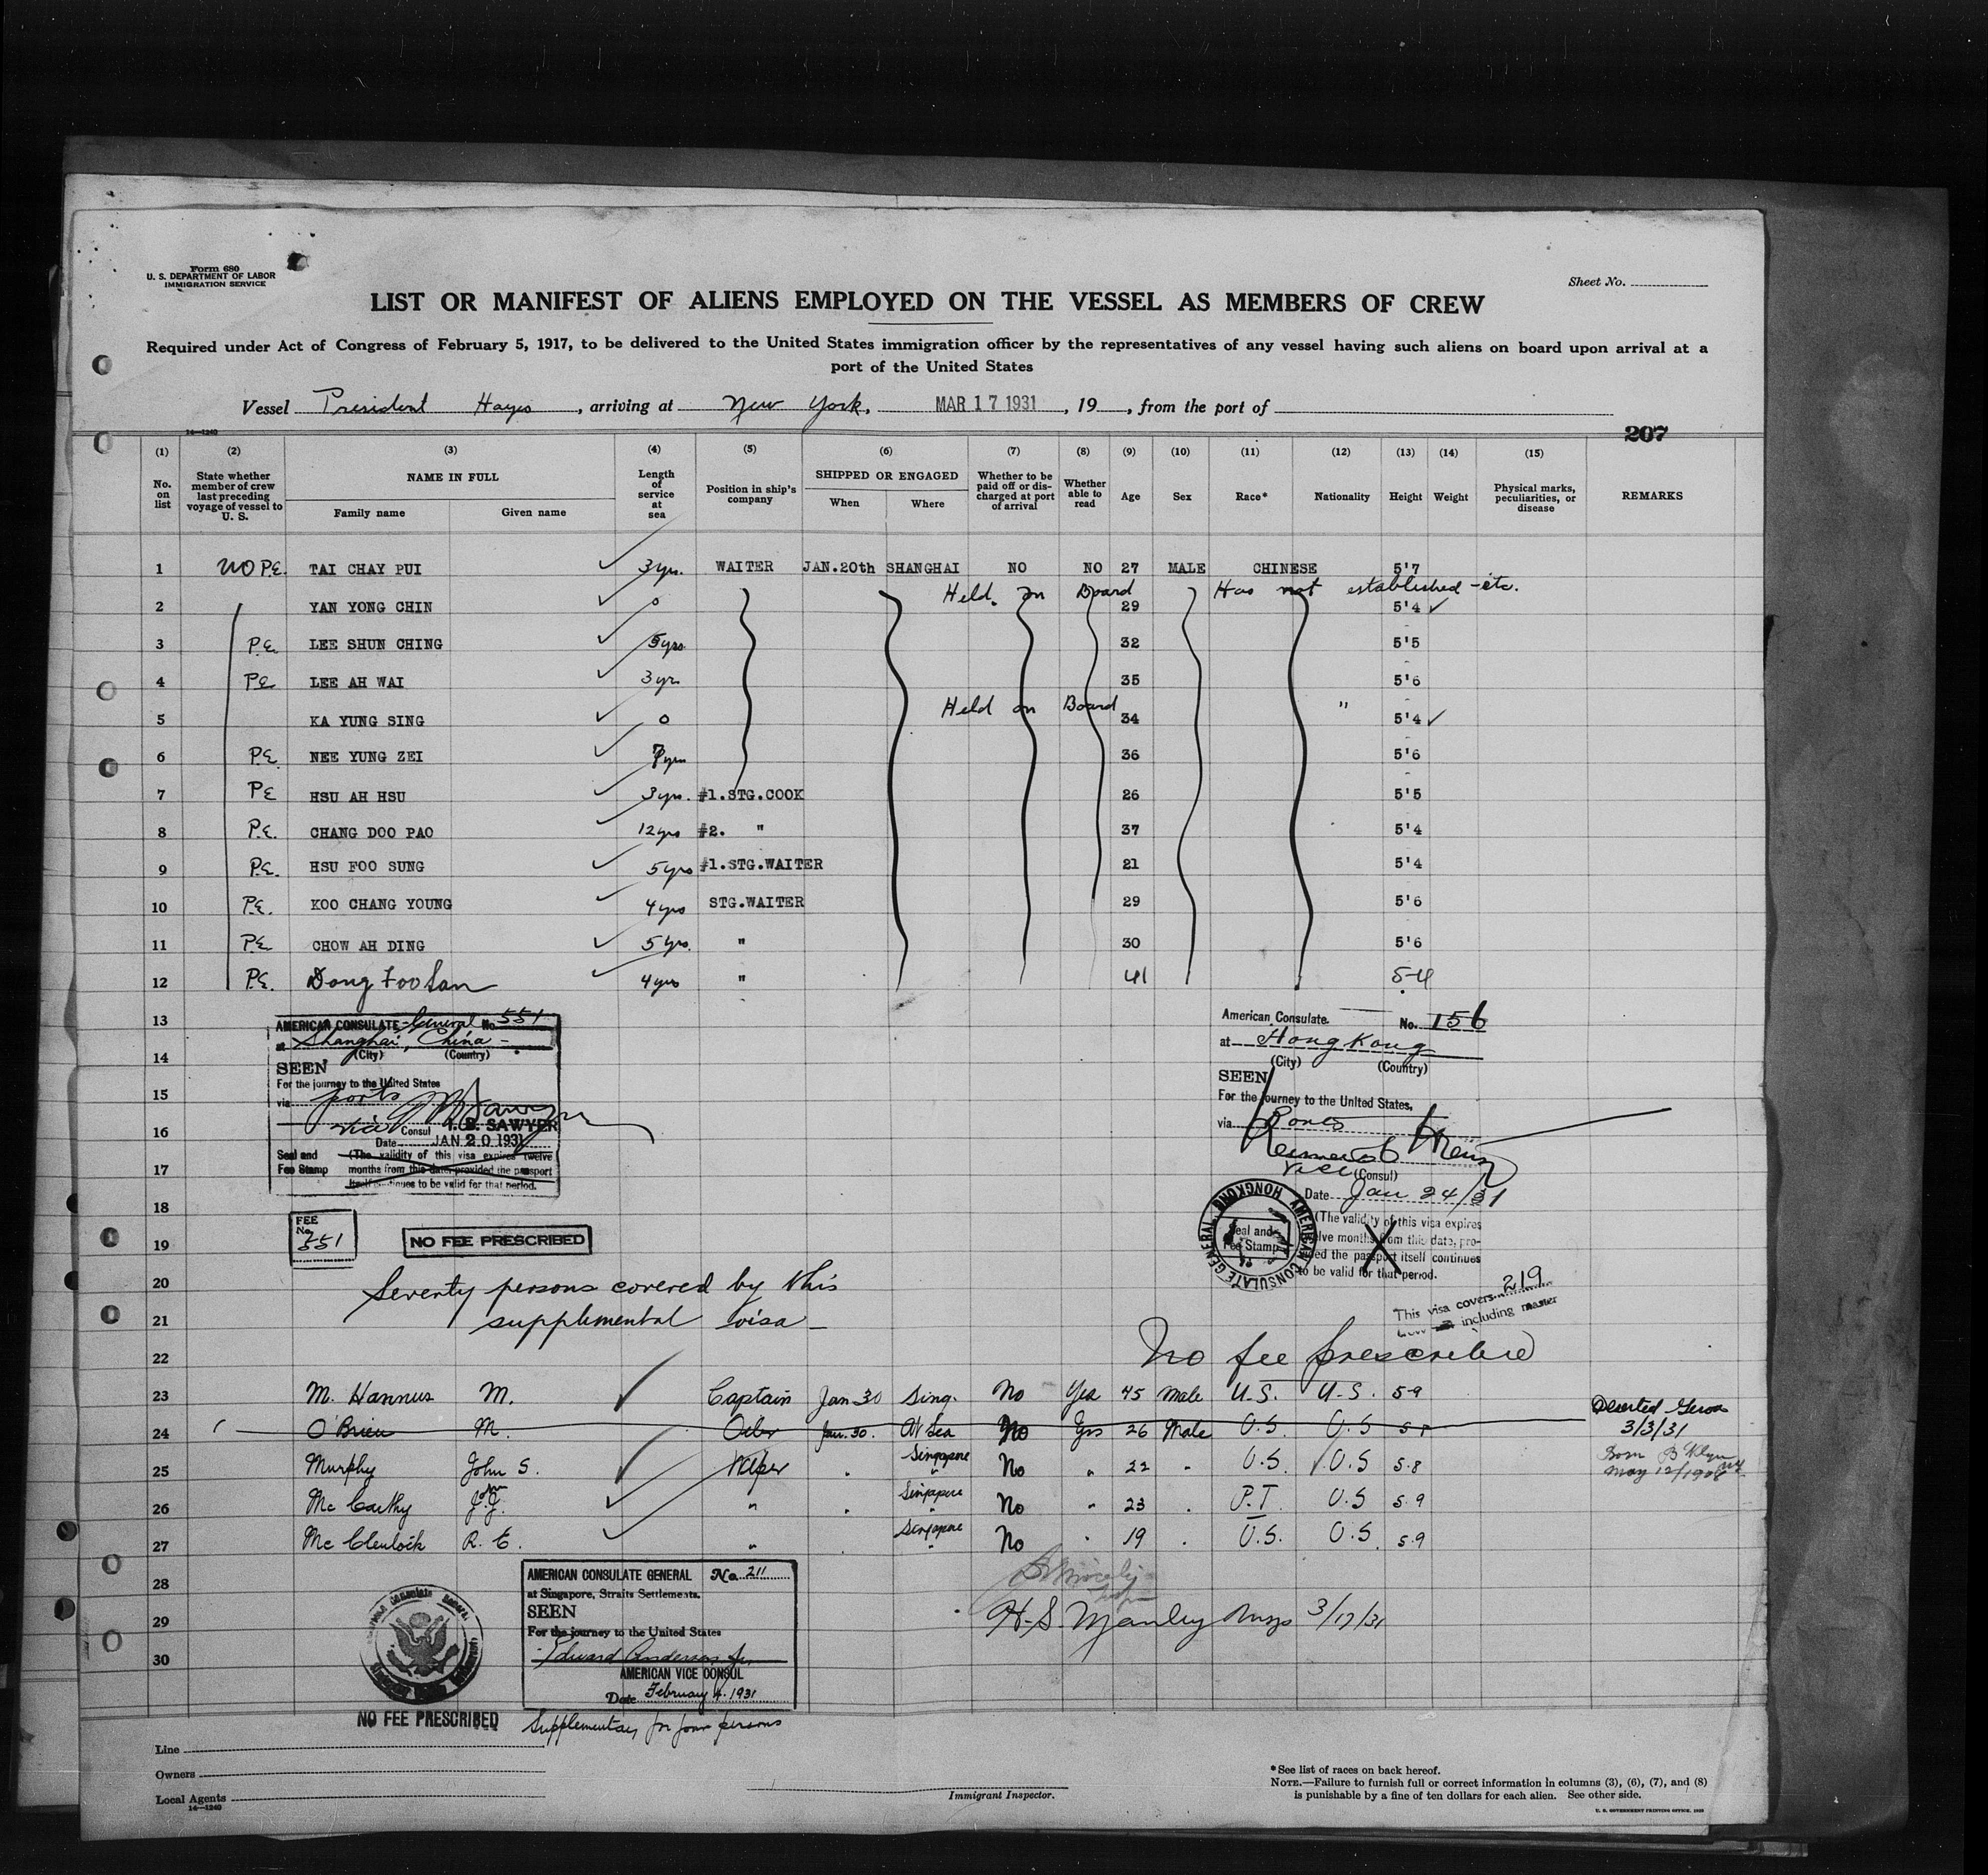 Form 680
U. S. DEPARTMENT OF LABOR
IMMIGRATION SERVICE
Sheet No.
LIST OR MANIFEST OF ALIENS EMPLOYED ON THE VESSEL AS MEMBERS OF CREW
Required under Act of Congress of February 5, 1917, to be delivered to the United States immigration officer by the representatives of any vessel having such aliens on board upon arrival at a
port of the United States
Vessel President Hayes, arriving at New York, MAR 17 1931, 19 , from the port of
14—1240
207
(1) No. on list
(2) State whether member of crew last preceding voyage of vessel to U. S.
(3) NAME IN FULL
Family name Given name
(4) Length of service at sea
(5) Position in ship's company
(6) SHIPPED OR ENGAGED
When Where
(7) Whether to be paid off or discharged at port of arrival
(8) Whether able to read
(9) Age
(10) Sex
(11) Race*
(12) Nationality
(13) Height
(14) Weight
(15) Physical marks, peculiarities, or disease
REMARKS
1 NO P.E. TAI CHAY PUI 3yrs. WAITER JAN.20th SHANGHAI NO NO 27 MALE CHINESE 5'7
Held on Board Has not established -etc.
2 YAN YONG CHIN 0 29 5'4
3 P.E. LEE SHUN CHING 5yrs. 32 5'5
4 P.E. LEE AH WAI 3yr. 35 5'6
Held on Board "
5 KA YUNG SING 0 34 5'4
6 P.E. NEE YUNG ZEI 7yrs 36 5'6
7 P.E. HSU AH HSU 3yrs. #1.STG.COOK 26 5'5
8 P.E. CHANG DOO PAO 12yrs #2. " 37 5'4
9 P.E. HSU FOO SUNG 5yrs #1.STG.WAITER 21 5'4
10 P.E. KOO CHANG YOUNG 4yrs STG.WAITER 29 5'6
11 P.E. CHOW AH DING 5yrs. " 30 5'6
12 P.E. Dong Foo San 4yrs " 41 5-4
13
14
15
16
17
18
19
20
21
22
AMERICAN CONSULATE-General No. 551
at Shanghai, China -
(City) (Country)
SEEN
For the journey to the United States
via ports
Vice Consul T. B. SAWYER
Date JAN 20 1931
Seal and Fee Stamp
(The validity of this visa expires twelve
months from this date, provided the passport
itself continues to be valid for that period.
FEE
No.
551
NO FEE PRESCRIBED
Seventy persons covered by this
supplemental visa -
American Consulate. No. 156
at Hong Kong
(City) (Country)
SEEN
For the journey to the United States,
via Ports
Vice (Consul)
Date Jan 24/31
AMERICAN CONSULATE GENERAL HONGKONG
Seal and
Fee Stamp
(The validity of this visa expires
twelve months from this date, pro-
vided the passport itself continues
to be valid for that period.
This visa covers 219
including master
No fee prescribed
23 M. Hannus M. Captain Jan 30 Sing. No Yes 45 Male U.S. U.S. 5-9
24 O'Brien M. Oiler Jan. 30. At Sea No Yes 26 Male U.S. U.S
Deserted Genoa
3/3/31
25 Murphy John S. Wiper Singapore No " 22 " U.S. U.S 5.8
Born B'klyn NY
May 12/1908
26 Mc Carthy J. J. " Singapore No " 23 U.S 5.9
27 R. E. " Singapore No 19 U.S. U.S. 5.9
28
29
30
AMERICAN CONSULATE GENERAL No. 211
at Singapore, Straits Settlements.
SEEN
For the journey to the United States
Edward Anderson Jr.
AMERICAN VICE CONSUL
Date February 4, 1931
NO FEE PRESCRIBED
Supplementary for four persons
H. S. Manley 3/17/31
Line
Owners
Local Agents
14—1240
Immigrant Inspector.
*See list of races on back hereof.
NOTE.—Failure to furnish full or correct information in columns (3), (6), (7), and (8)
is punishable by a fine of ten dollars for each alien. See other side.